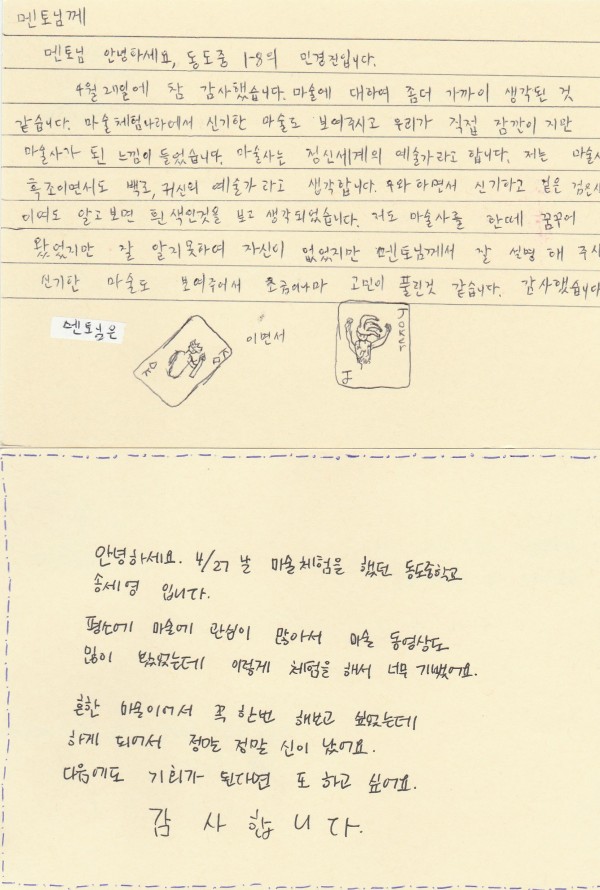 멘토님께
멘토님 안녕하세요, 동도중 1-8의 민경진입니다.
4월 27일에 참 감사했습니다. 마술에 대하여 좀더 가까이 생각된 것
같습니다. 마술체험나라에서 신기한 마술도 보여주시고 우리가 직접 잠깐이 지만
마술사가 된 느낌이 들었습니다. 마술사는 정신세계의 예술가라고 합니다. 저는 마술사
흑조이면서도 백로, 귀신의 예술가 라고 생각합니다. 우와 하면서 신기하고 겉은 검은색
이여도 알고보면 흰색인것을 보고 생각되었습니다. 저도 마술사를 한때 꿈꾸어
왔었지만 잘 알지못하여 자신이 없었지만 멘토님께서 잘 설명 해 주시
신기한 마술도 보여주어서 조금이나마 고민이 풀린것 같습니다. 감사했습니다
멘토님은
이면서
JOKER
J
안녕하세요. 4/27 날 마술체험을 했던 동도중학교
송세영 입니다.
평소에 마술에 관심이 많아서 마술 동영상도
많이 봤었는데 이렇게 체험을 해서 너무 기뻤어요.
흔한 마술이어서 꼭 한번 해보고 싶었는데
하게 되어서 정말 정말 신이 났어요.
다음에도 기회가 된다면 또 하고 싶어요.
감 사 합 니 다.